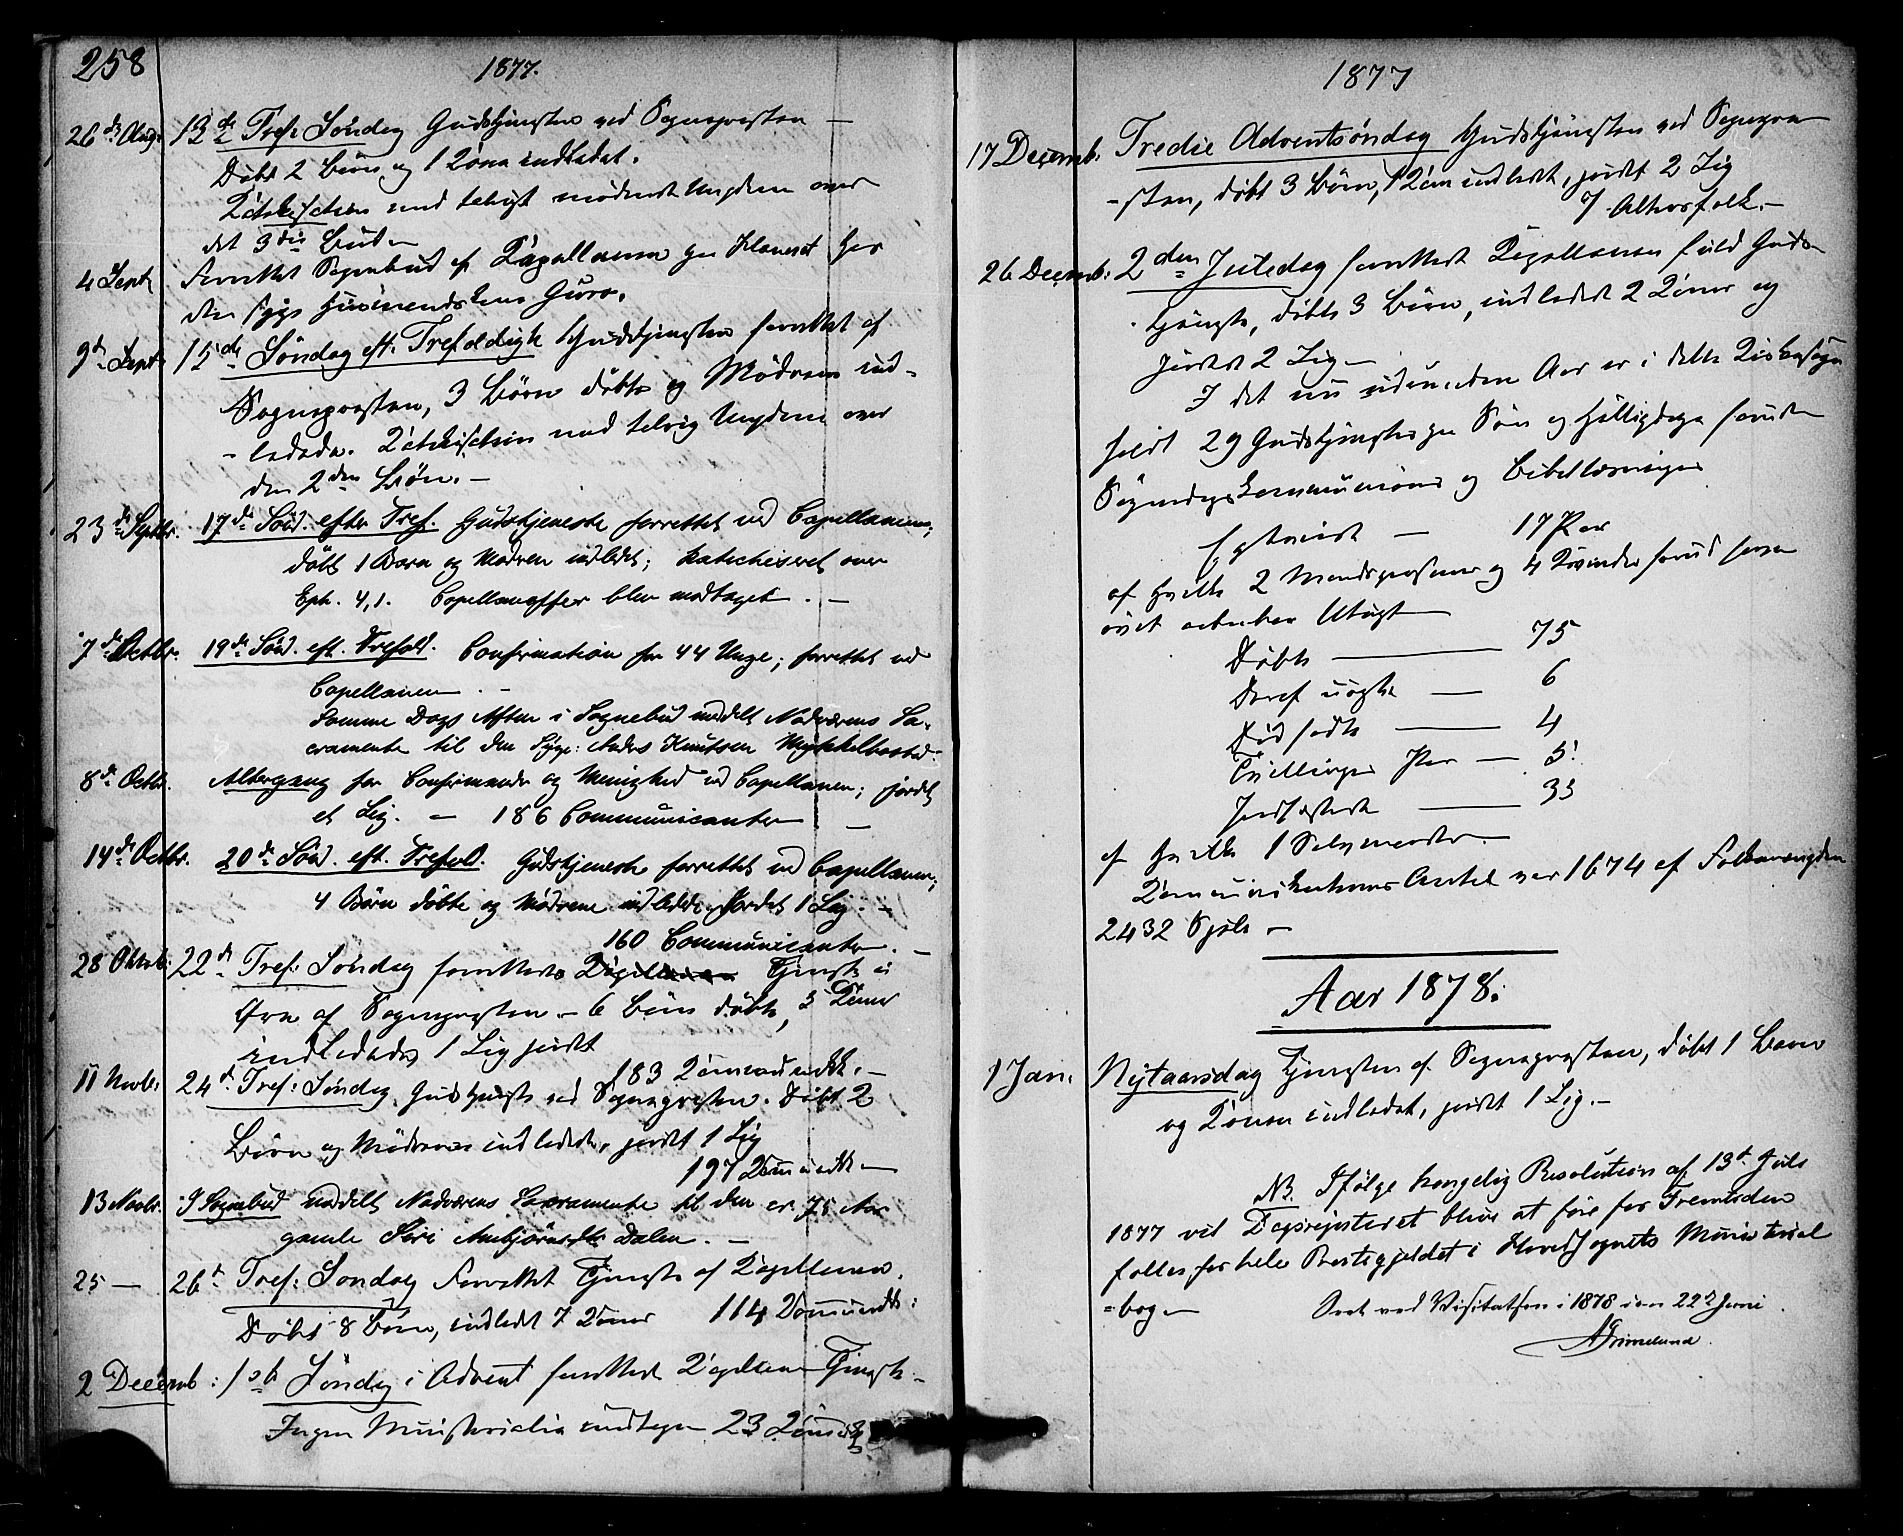 258
1877.
26de Aug. 13de Tref: Söndag Gudstjenesten ved Sognepresten —
Döbt 2 Börn og 1 Kone indledet.
Katekisation med talrigt mödende Ungdom over
det 3die Bud —
4 Sept Forrettet Sognebud af Kapellanen paa
den syge Huusmandskone Guro.
9de Sept 15de Söndag eft. Trefoldigh Gudstjenesten forrettet af
Sognepresten, 3 Börn döbte og Mödrene ind-
ledede. Katekisation med talrig Ungdom over
den 2den Bön. —
23de Septbr. 17de Sönd. efter Tref. Gudstjeneste forrettet ved Capellanen;
döbt 1 Barn og Modren indledet; katechiseret over
Eph. 4,1. Capellanoffer blev modtaget. —
7de Octbr. 19de Sönd. eft. Trefold. Confirmation for 44 Unge; forrettet ved
Capellanen. —
Samme Dags Aften i Sognebud meddelt Nadverens Sa-
cramente til den Syge: Anders Knutsen Myklebostad.
8de Octbr. Altergang for Confirmander og Menighed ved Capellanen; jordet
et Lig. — 186 Communicanter —
14de Octbr. 20de Sönd. eft. Trefold. Gudstjeneste forrettet ved Capellanen;
4 Börn döbte og Mödrene indledede. Jordet 1 Lig. —
160 Communicanter. —
28 Oktob: 22de Tref: Söndag forrettede Kapellanen Tjeneste i
af Sognepresten — 6 Börn döbte, 3 Koner
indledede, 1 Lig jordet
183 Kommunikk. —
11 Novb: 24de Tref: Söndag Gudstjeneste ved Sognepresten. Döbt 2
Börn og Mödrene indledede, jordet 1 Lig
197 Kommunikk —
13 Novbr. I Sognebud meddelt Nadverens Sacramente til den ca. 75 Aar
gamle Siri Dalen. —
25 — 26de Tref: Söndag Forrettet Tjeneste af Kapellanen.
Döbt 8 Börn, indledet 7 Koner 114 Kommunikk:
2 Decemb: 1ste Söndag i Advent forrettede Kapellanen Tjeneste —
Ingen Ministerialia undtagen 23
1877
17 Decemb. Tredie Adventsöndag Gudstjenesten ved Sognepre-
-sten, döbt 3 Börn, 1 Kone indledet, jordet 2 Lig
7 Altersfolk. —
26 Decemb: 2den Juledag forrettede Kapellanen fuld Guds-
tjeneste, döbte 3 Börn, indledet 2 Koner og
jordet 2 Lig —
I det nu svundne Aar er i dette Kirkesogn
holdt 29 Gudstjenester paa Sön og Helligdage foruden
Sögnedagskommunioner og Bibellæsninger
Egteviet — 17 Par
af hvilke 2 Mandspersoner og 4 Kvinder forud havde
avlet uden for Ægteskab
Döbte — 75
Deraf uægte — 6
Död fødte — 4
Tvillinger Par — 5
Jordfæstede — 33
af hvilke 1 Selvmorder —
Kommunikanternes Antal var 1674 af Folkemængden
2432 Sjæle —
Aar 1878.
1 Jan. Nytaarsdag Tjenesten af Sognepresten, döbt 1 Barn
og Konen indledet, jordet 1 Lig. —
NB. Ifölge kongelig Resolution af 13de Juli
1877 vil Dagsregisteret blive at före for Fremtiden
fælles for hele Prestegjeldet i Hovedsognets Ministerial
=bog —
Seet ved Visitatsen i 1878 den 22de Juni.
AGrimelund.